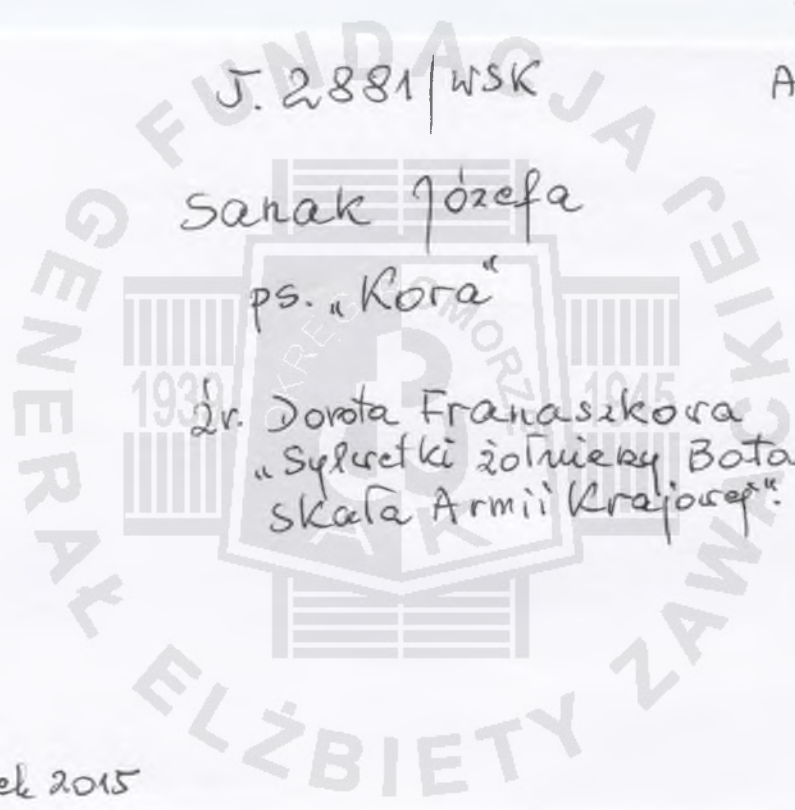 J. 2881/WSK A
Sanak Józefa
ps. „Kora"
źr. Dorota Franaszkowa
„Sylwetki żołnierzy Bata
Skała Armii Krajowej".
2015
FUNDACJA GENERAŁ ELŻBIETY ZAWACKIEJ
1939 1945
OKRĘG POMORZE
AK